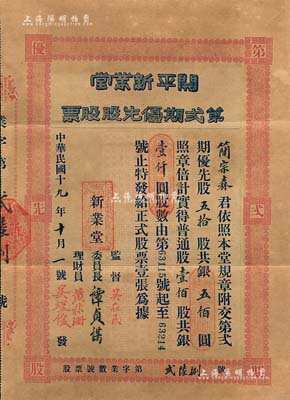 開平新業堂
第弍期優先股股票
簡宗森君依照本堂規章附交第弍
期優先股五拾股共銀五佰圓
照章倍計實得普通股壹佰股共銀
壹仟圓股數由第63115號起至63214
號止特發給正式股票壹張為據
新業堂
監督 吳在民
委員長 譚貞謀
理財員
中華民國十九年十月一號發
第字業數號票股 弍陸捌 號
優
先
第
弍
期
股